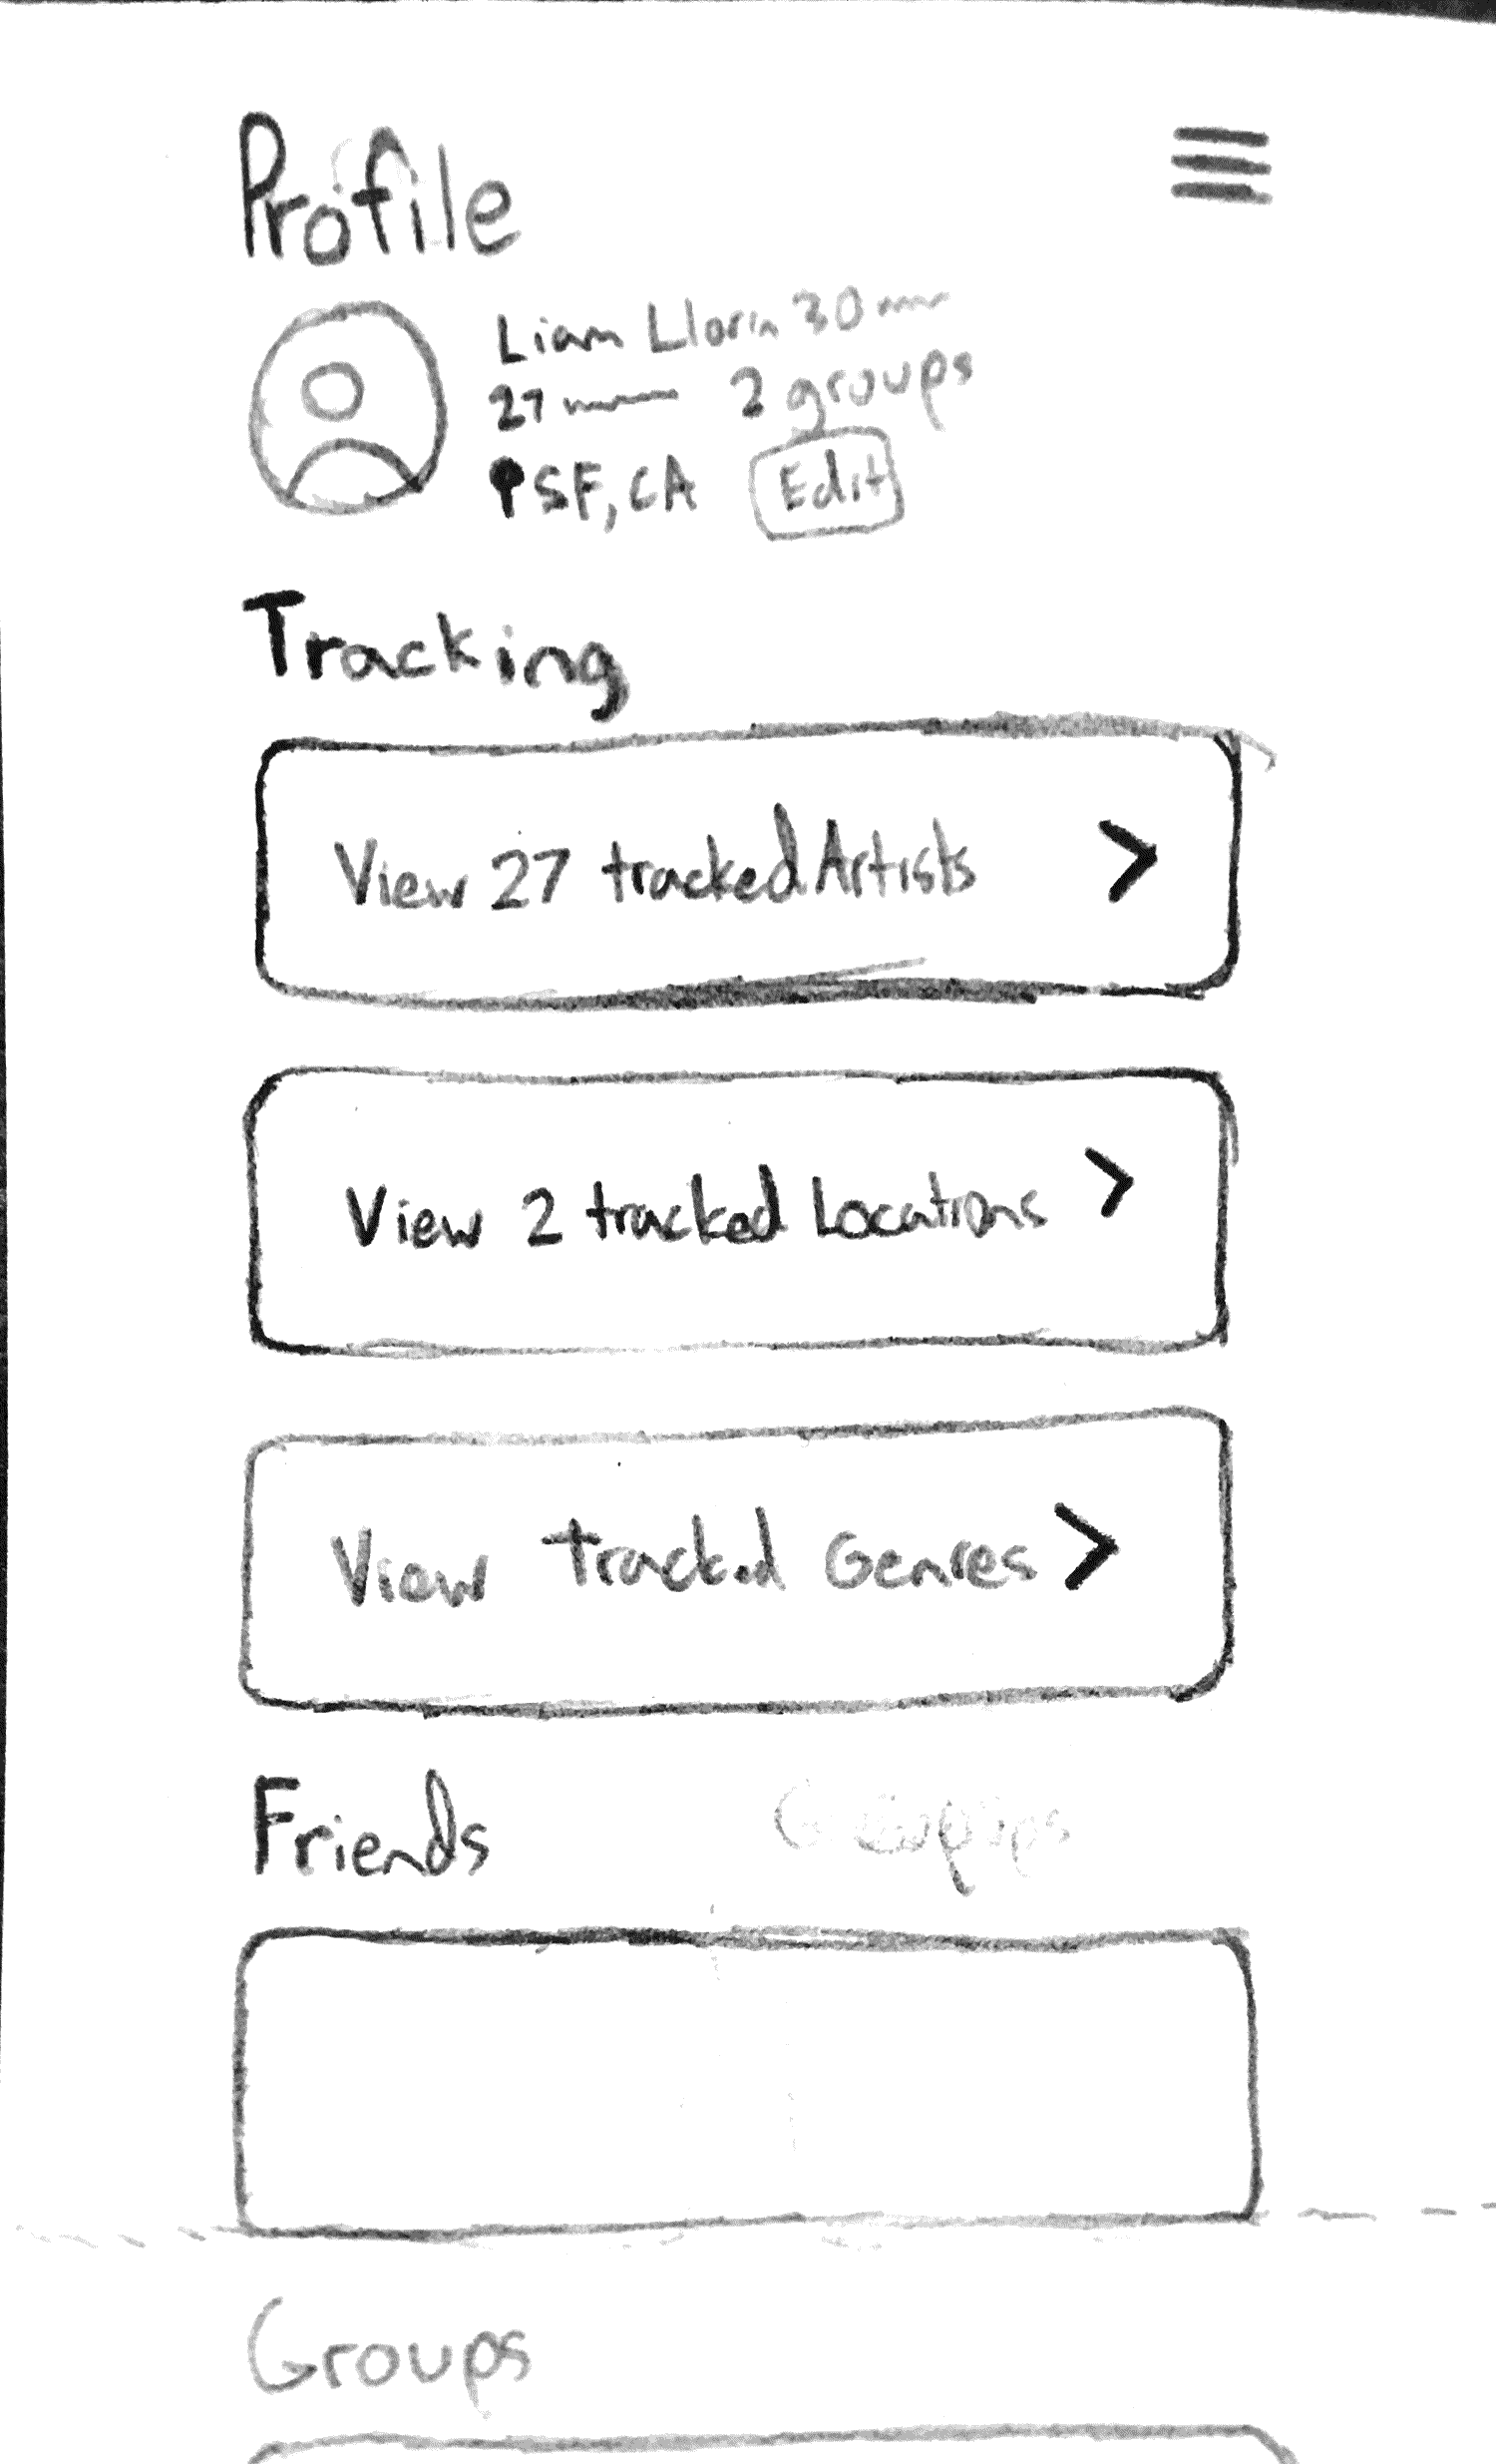 Profile
Liam Llorin 30
27 2 groups
SF, CA Edit
Tracking
View 27 tracked Artists
View 2 tracked Locations
View Tracked Genres
Friends
Groups